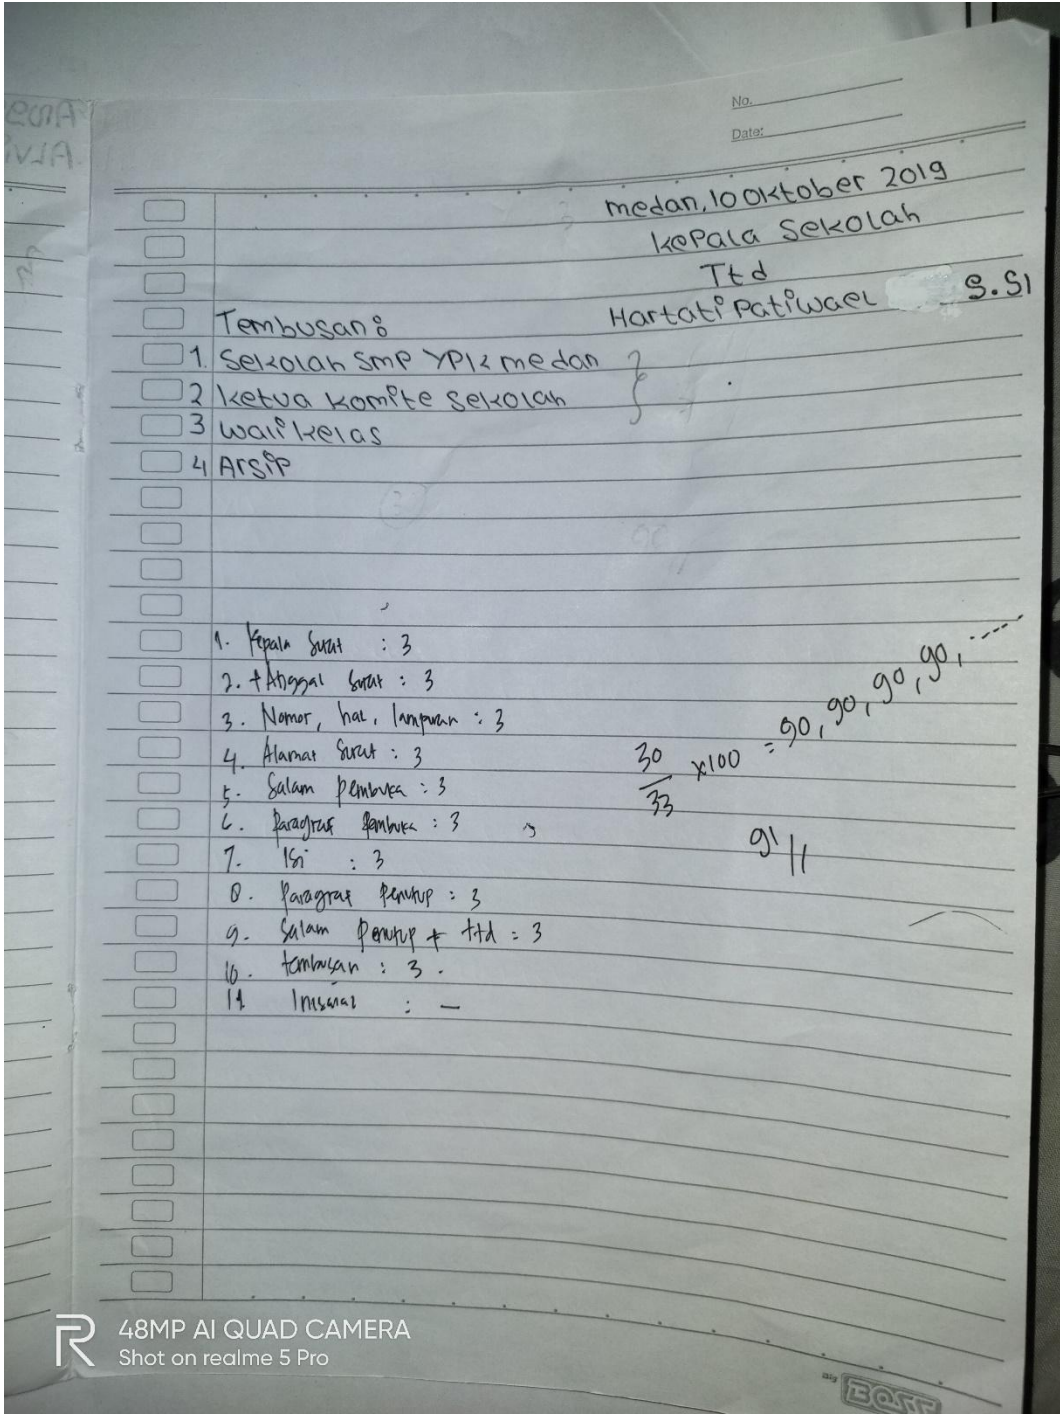 No.
Date:
medan, 10 Oktober 2019
Kepala Sekolah
Ttd
Hartati Patiwael S.SI
Tembusan:
1. Sekolah Smp YPK medan
2 ketua komite sekolah
3 wali kelas
4 Arsip
1. Kepala Surat : 3
2. tAnggal Surat : 3
3. Nomor, hal, lampiran : 3
4. Alamat Surat : 3
5. Salam pembuka : 3
6. Paragraf Pembuka : 3
7. Isi : 3
8. Paragraf Penutup : 3
9. Salam Penutup + ttd : 3
10. tembusan : 3 .
11 Inisial : —
30/33 x100 = 90, 90, 90, 90, ......
91 //
48MP AI QUAD CAMERA
Shot on realme 5 Pro
Big BOSS